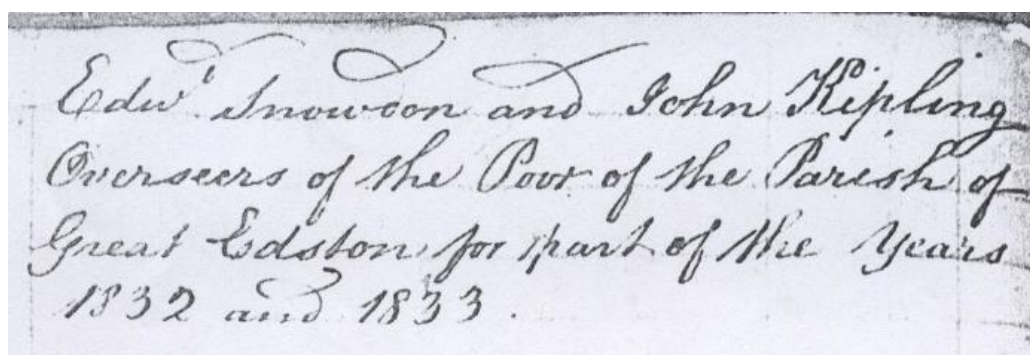 Edwd Snowdon and John Kipling
Overseers of the Poor of the Parish of
Great Edston for part of the Years
1832 and 1833.